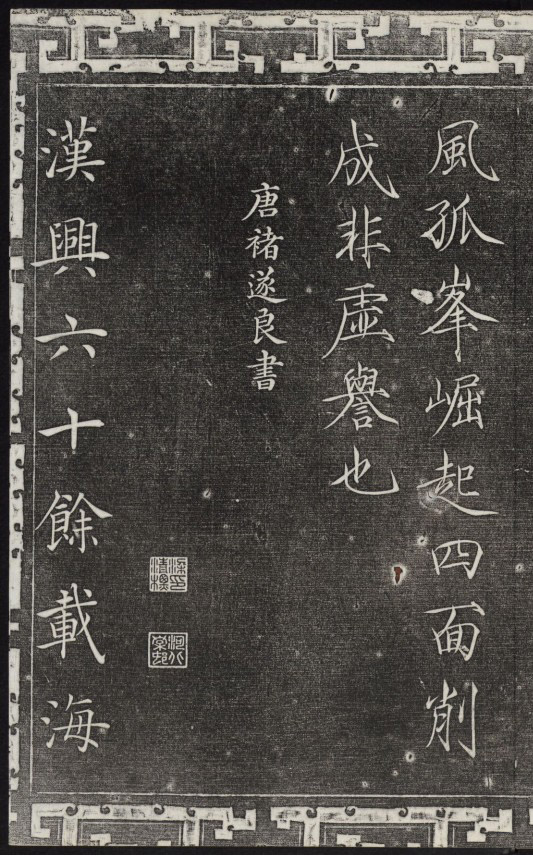 風孤峯崛起四面削
成非虛譽也
唐褚遂良書
漢興六十餘載海